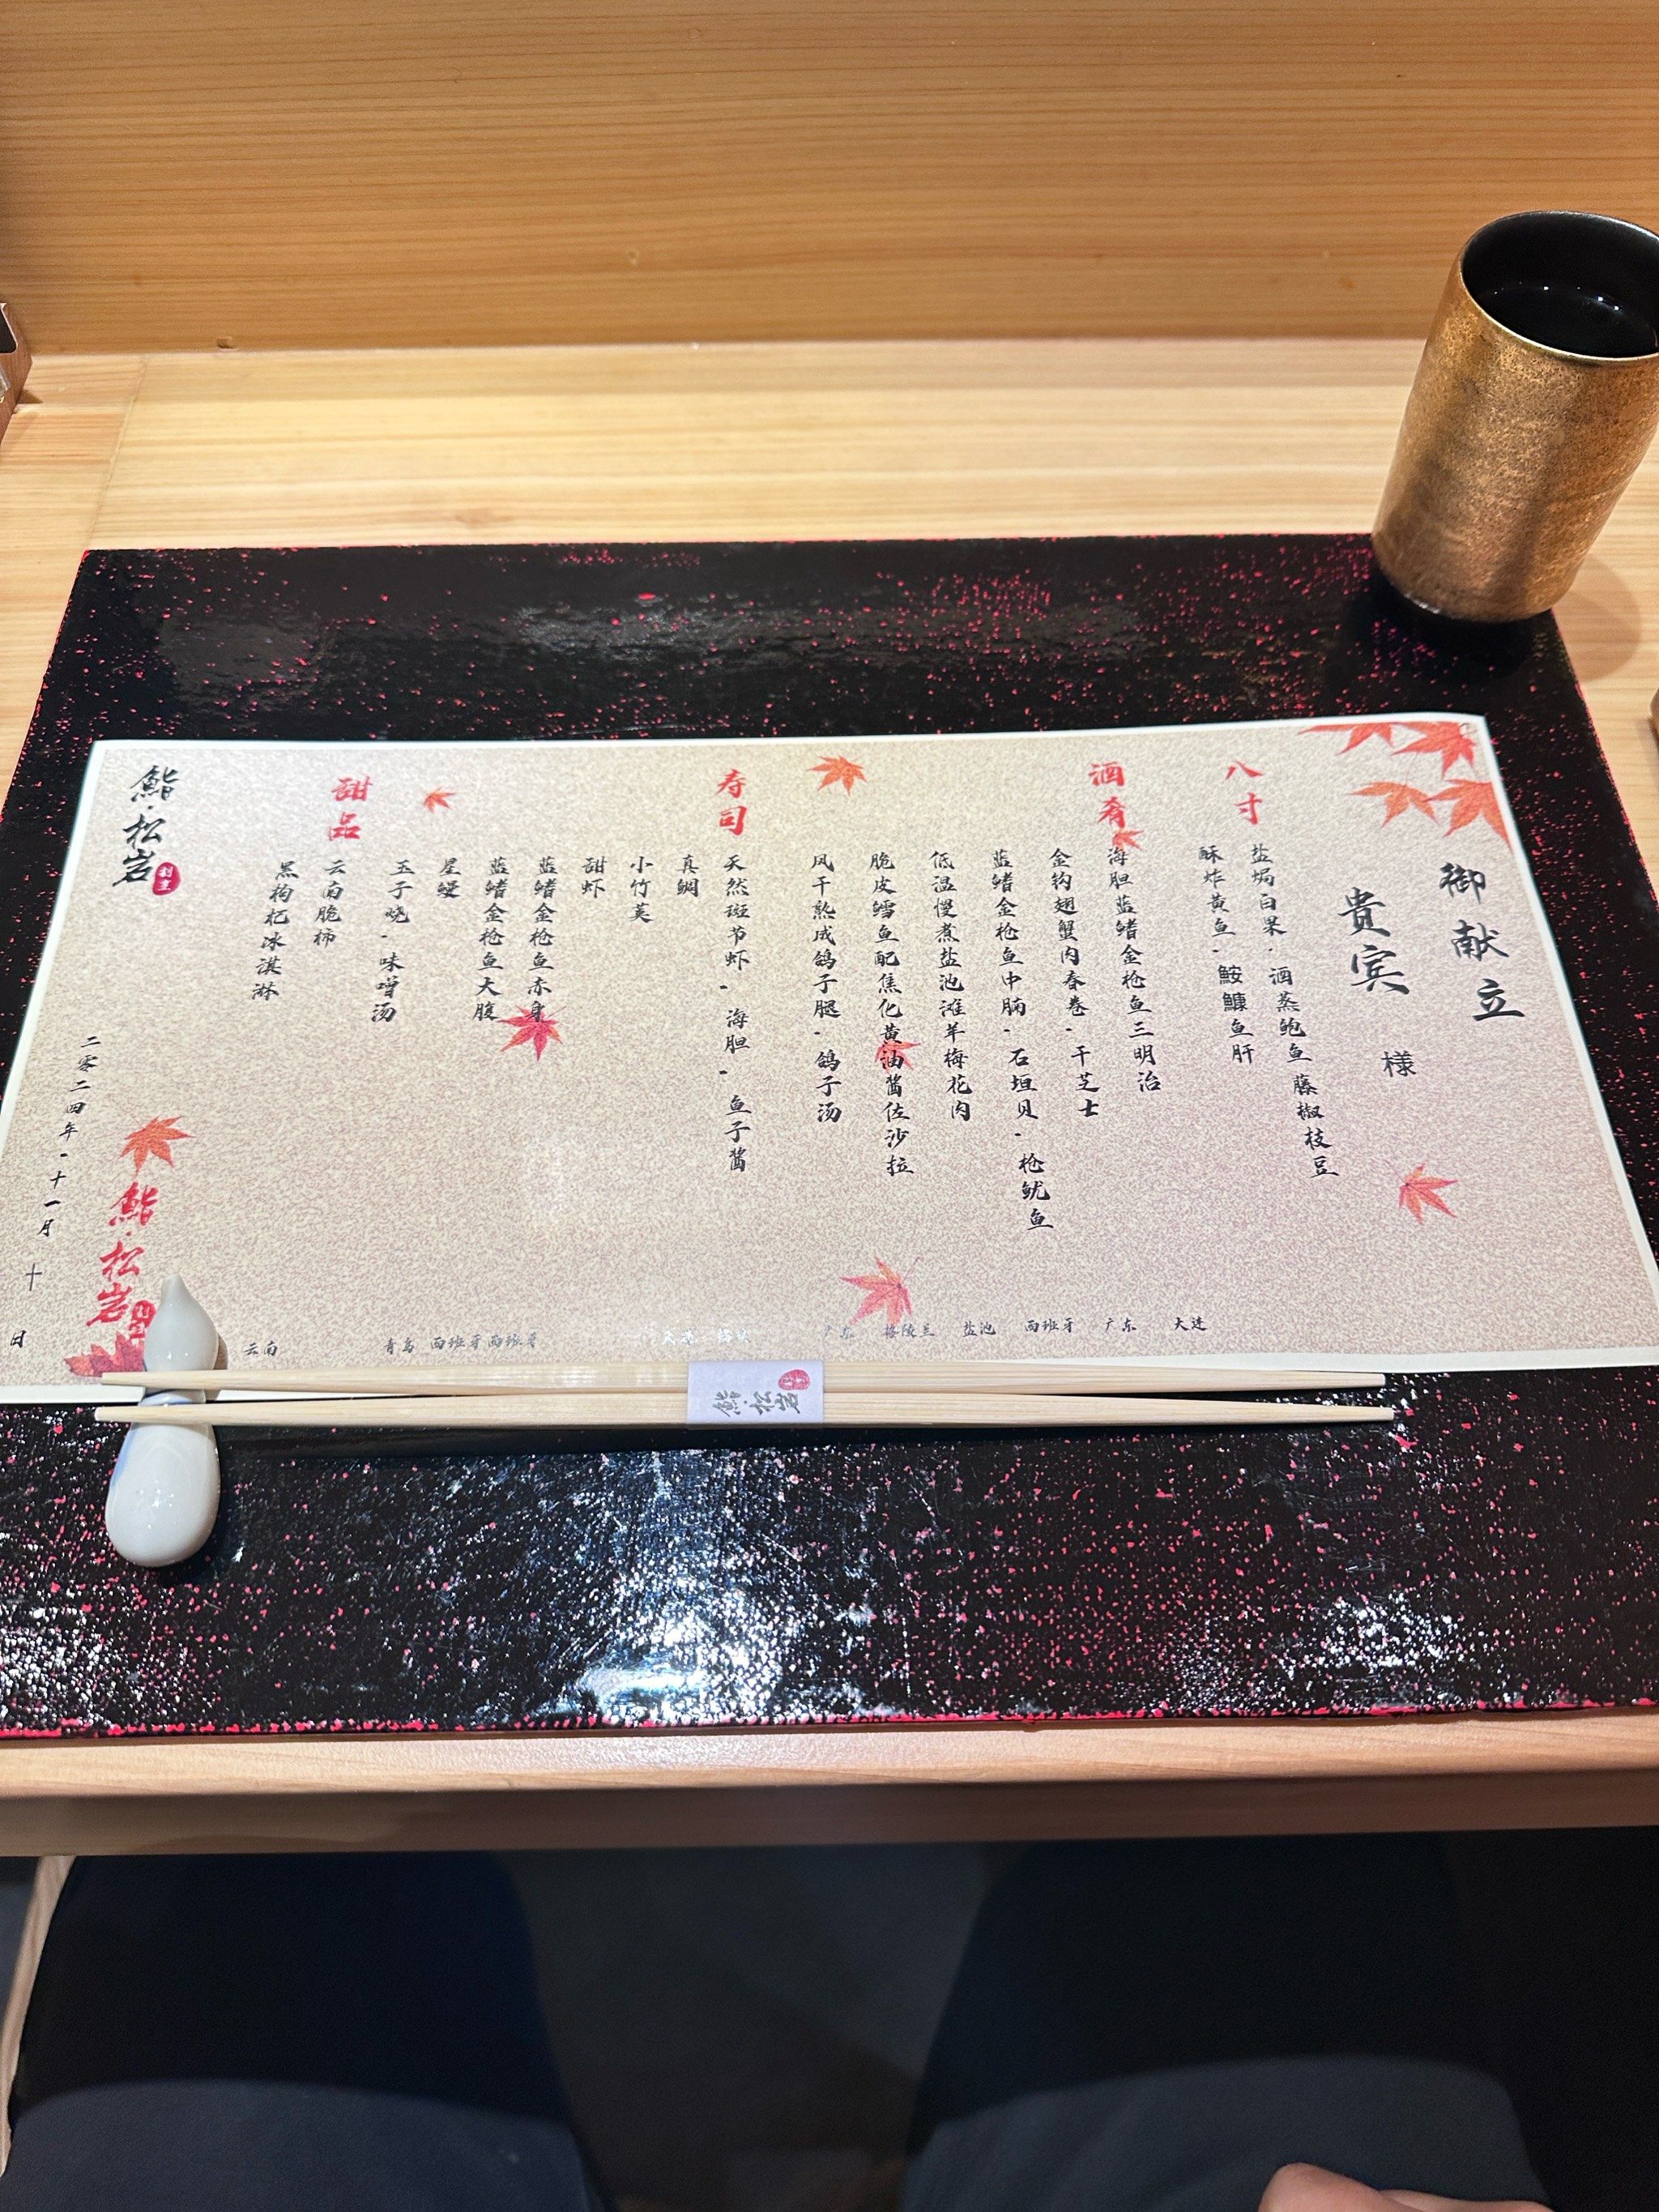 御献立
贵宾 様
八寸
盐焗白果·酒蒸鲍鱼 藤椒枝豆
酥炸黄鱼·鮟鱇鱼肝
酒肴
海胆蓝鳍金枪鱼三明治
金钩翅蟹肉春卷·干芝士
蓝鳍金枪鱼中腩·石垣贝·枪鱿鱼
低温慢煮盐池滩羊梅花肉
脆皮鳕鱼配焦化黄油酱佐沙拉
风干熟成鸽子腿·鸽子汤
寿司
天然斑节虾·海胆·鱼子酱
真鲷
小竹荚
甜虾
蓝鳍金枪鱼赤身
蓝鳍金枪鱼大腹
星鳗
玉子烧·味噌汤
甜品
云南脆柿
黑枸杞冰淇淋
鮨·松岩
二零二四年·十一月 十 日
鮨·松岩
大连
广东
西班牙
盐池
格陵兰
广东
西班牙
西班牙
青岛
云南
鮨·松岩